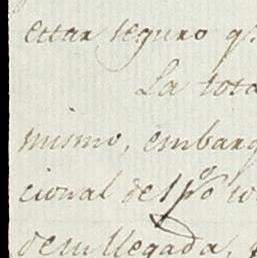 estar seguro q.
La tota
mismo, embarq
cional del
de mi llegada,